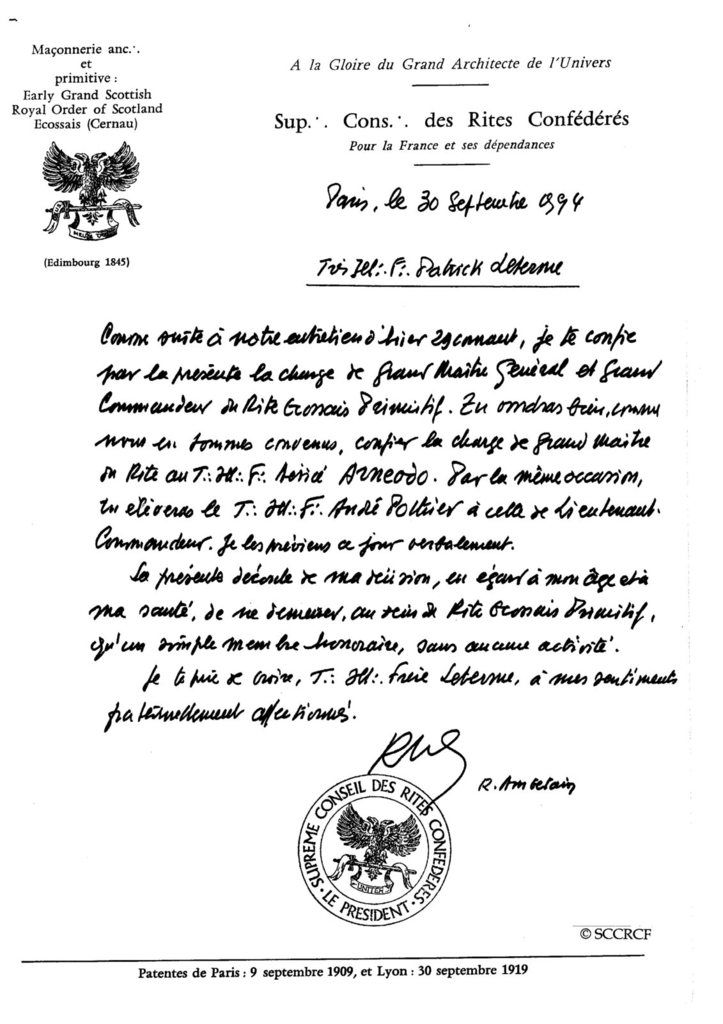 Maçonnerie anc.∙.
et
primitive :
Early Grand Scottish
Royal Order of Scotland
Ecossais (Cernau)
(Edimbourg 1845)
A la Gloire du Grand Architecte de l'Univers
Sup.∙. Cons.∙. des Rites Confédérés
Pour la France et ses dépendances
Paris, le 30 Septembre 1994
Très Ill∴ F∴ Patrick Leterme
Comme suite à notre entretien d'hier 29 courant, je te confie
par la présente la charge de Grand Maître Général et Grand
Commandeur du Rite Ecossais Primitif. Tu voudras bien, comme
nous en sommes convenus, confier la charge de Grand Maître
du Rite au T∴ Ill∴ F∴ Arneodo. Par la même occasion,
tu élèveras le T∴ Ill∴ F∴ André Pothier à celle de Lieutenant-
Commandeur. Je les préviens ce jour verbalement.
La présente découle de ma décision, eu égard à mon âge et à
ma santé, de ne demeurer, au sein du Rite Ecossais Primitif,
qu'un simple membre honoraire, sans aucune activité.
Je te prie de croire, T∴ Ill∴ Frère Leterme, à mes sentiments
fraternellement affectionnés.
R. Ambelain
SUPREME CONSEIL DES RITES CONFEDERES
LE PRESIDENT
© SCCRCF
Patentes de Paris : 9 septembre 1909, et Lyon : 30 septembre 1919